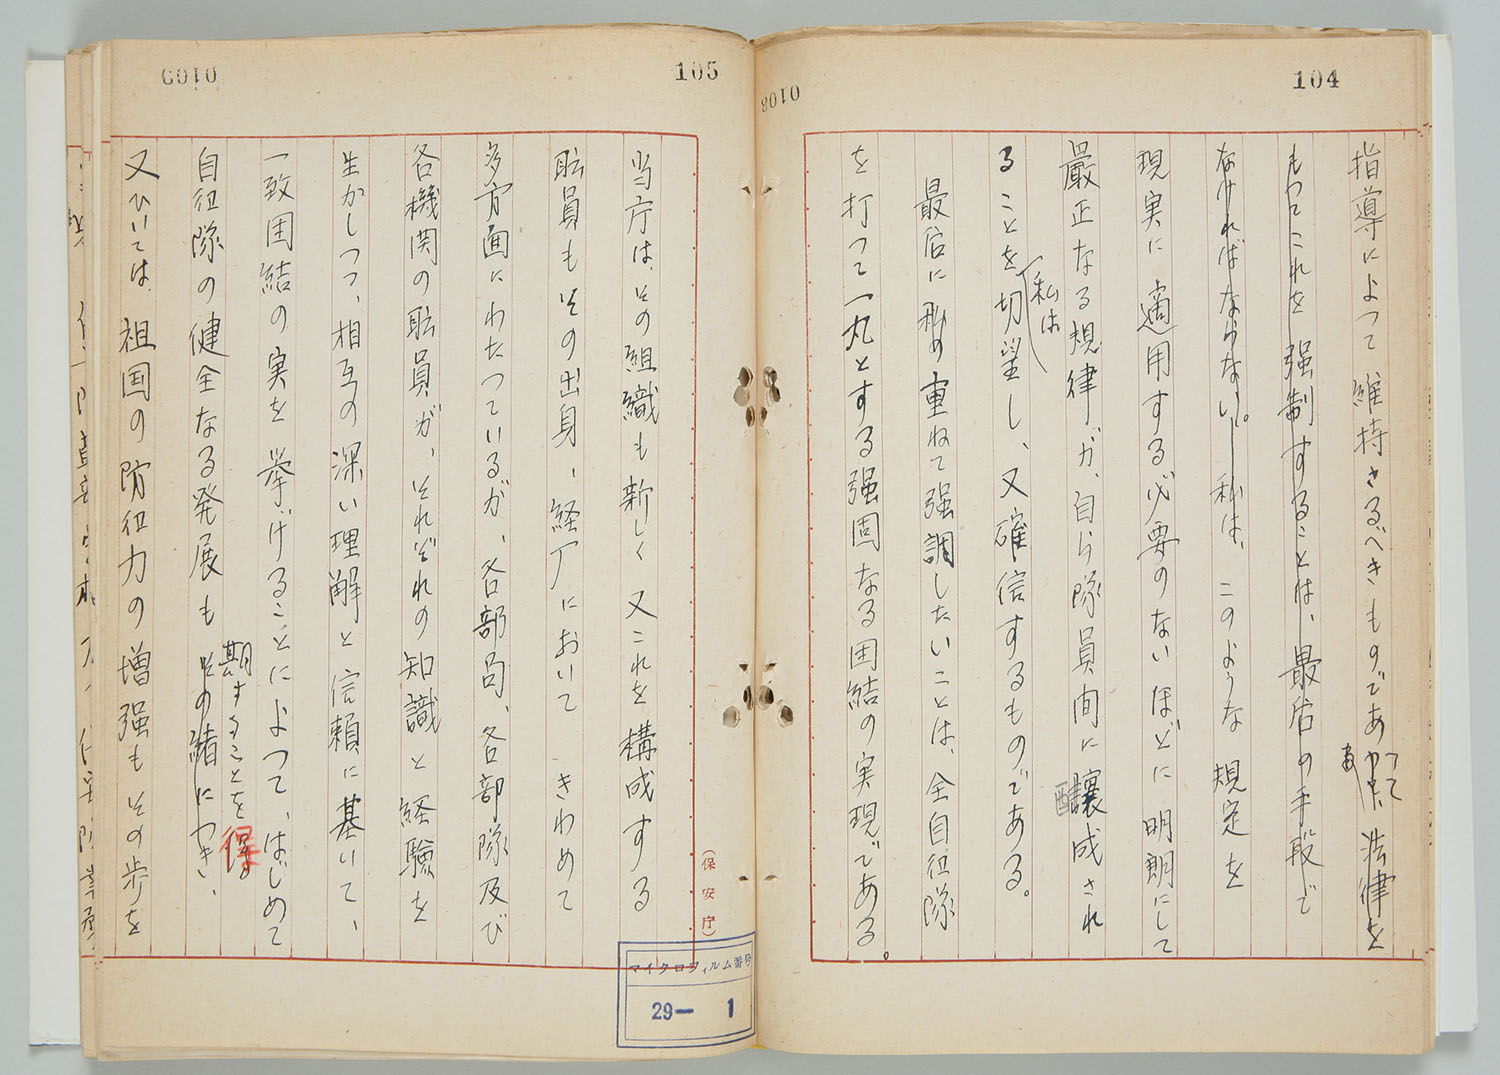 104
0108
指導によつて維持さるべきものであつて、法律を
もつてこれを強制することは、最后の手段で
なければならない。私は、このような規定を
現実に適用する必要のないほどに明朗にして
厳正なる規律が、自ら隊員間に醸成され
ることを私は切望し、又確信するものである。
最后に私の重ねて強調したいことは、全自衛隊
を打つて一丸とする强固なる団結の実現である。
105
0109
当庁は、その組織も新しく又これを構成する
職員もその出身、経歴において きわめて
多方面にわたつているが、各部局、各部隊及び
各機関の職員が、それぞれの知識と経験を
生かしつつ、相互の深い理解と信頼に基いて、
一致団結の実を挙げることによつて、はじめて
自衛隊の健全なる発展もその緒につき、
期することを得
又ひいては、祖国の防衛力の増强もその歩を
(保安庁)
マイクロフィルム番号
29— 1